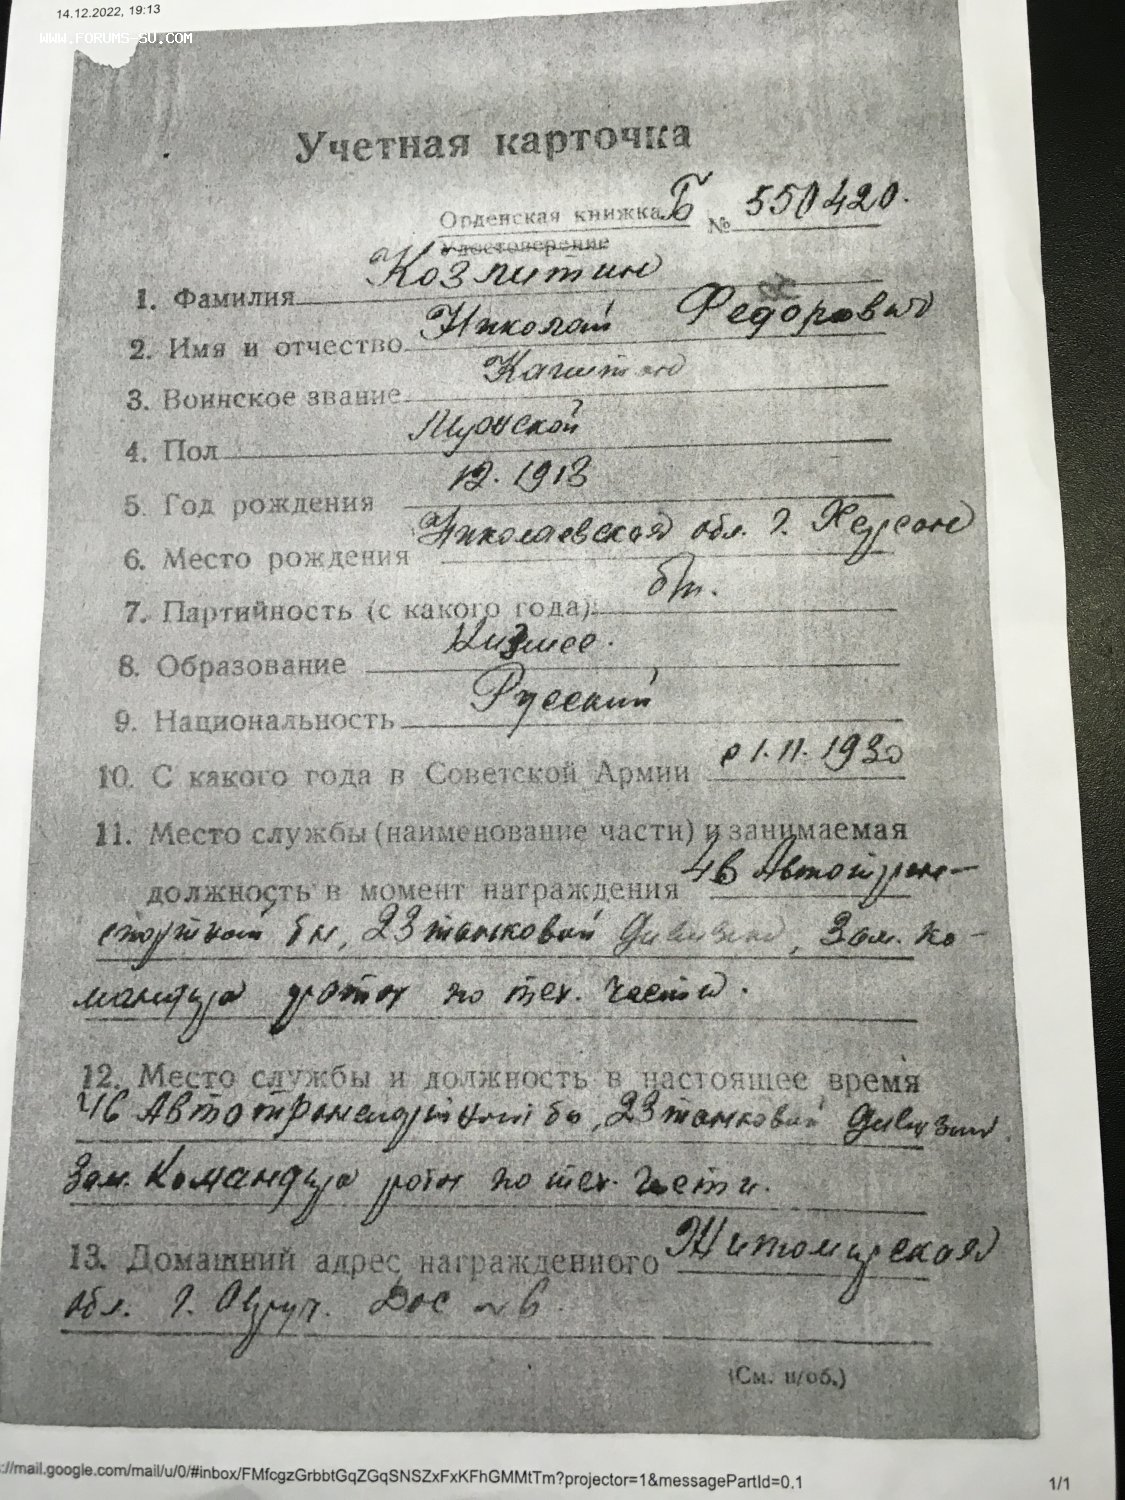 14.12.2022, 19:13
WWW.FORUMS-SU.COM
Учетная карточка
Орденская книжка Б № 550420.
Удостоверение
1. Фамилия Козлитин
2. Имя и отчество Николай Федорович
3. Воинское звание Капитан
4. Пол Мужской
5. Год рождения 12. 1913
6. Место рождения Николаевская обл. г. Херсон
7. Партийность (с какого года): б/п.
8. Образование Низшее.
9. Национальность Русский
10. С какого года в Советской Армии с 1.11.1930
11. Место службы (наименование части) и занимаемая
должность в момент награждения 46 Автотран-
спортный бн, 23 танковой дивизии, Зам. ко-
мандира роты по тех. части.
12. Место службы и должность в настоящее время
46 Автотранспортный бн, 23 танковой дивизии.
Зам. Командира роты по тех. части.
13. Домашний адрес награжденного Житомирская
обл. г. Овруч. Дос № 6.
(См. н/об.)
://mail.google.com/mail/u/0/#inbox/FMfcgzGrbbtGqZGqSNSZxFxKFhGMMtTm?projector=1&messagePartId=0.1
1/1